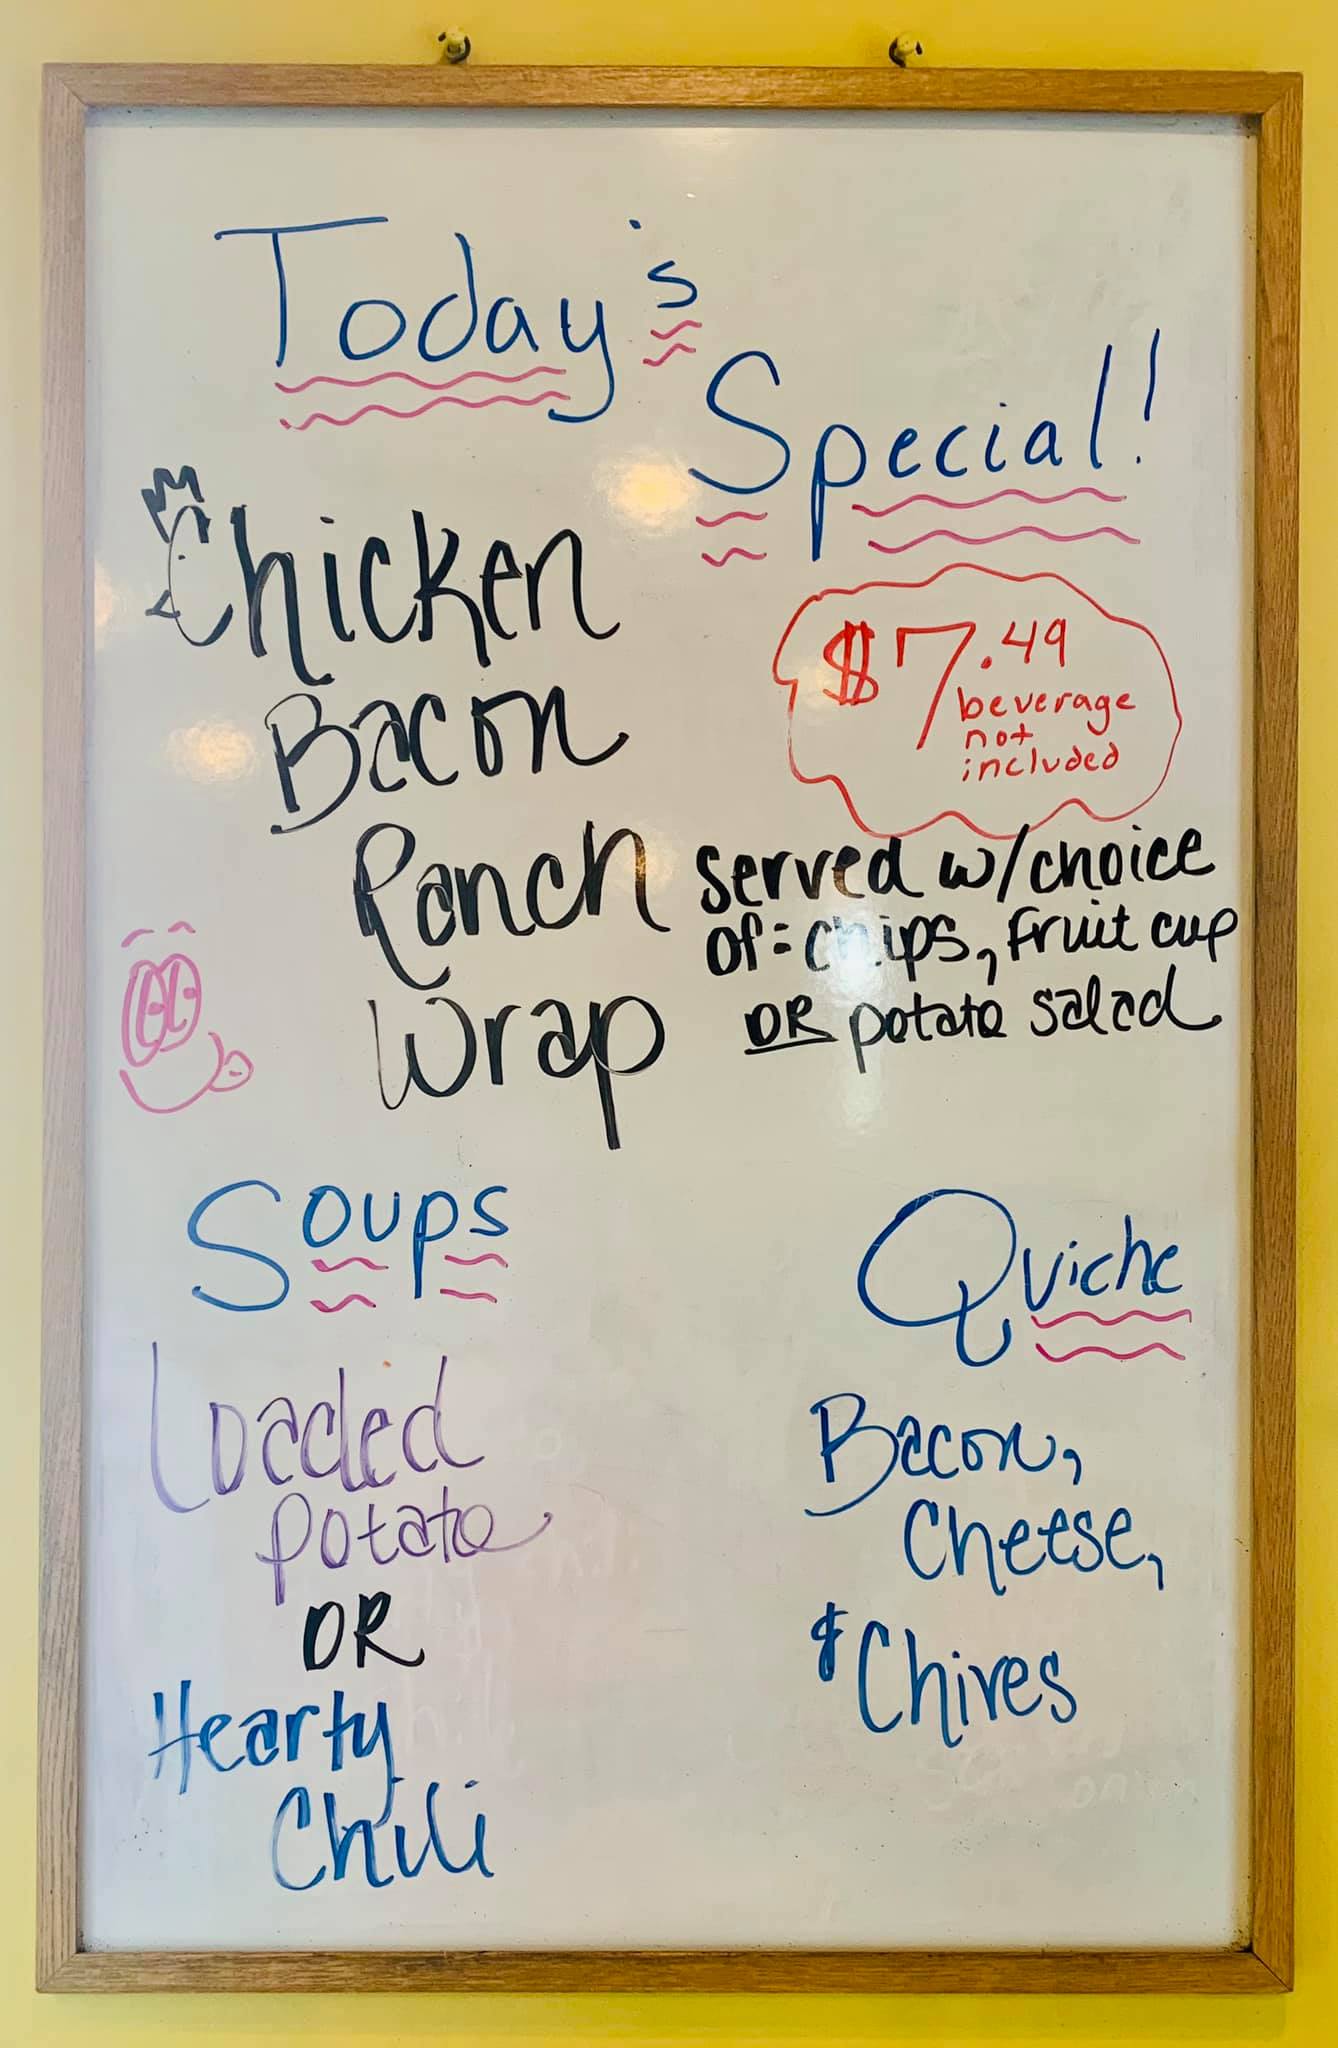 Today's
Special!
Chicken
Bacon
Ranch
Wrap
$7.49
beverage
not
included
served w/choice
of: chips, Fruit cup
OR potato salad
Soups
Loaded
Potato
OR
Hearty
Chili
Quiche
Bacon,
Cheese,
& Chives